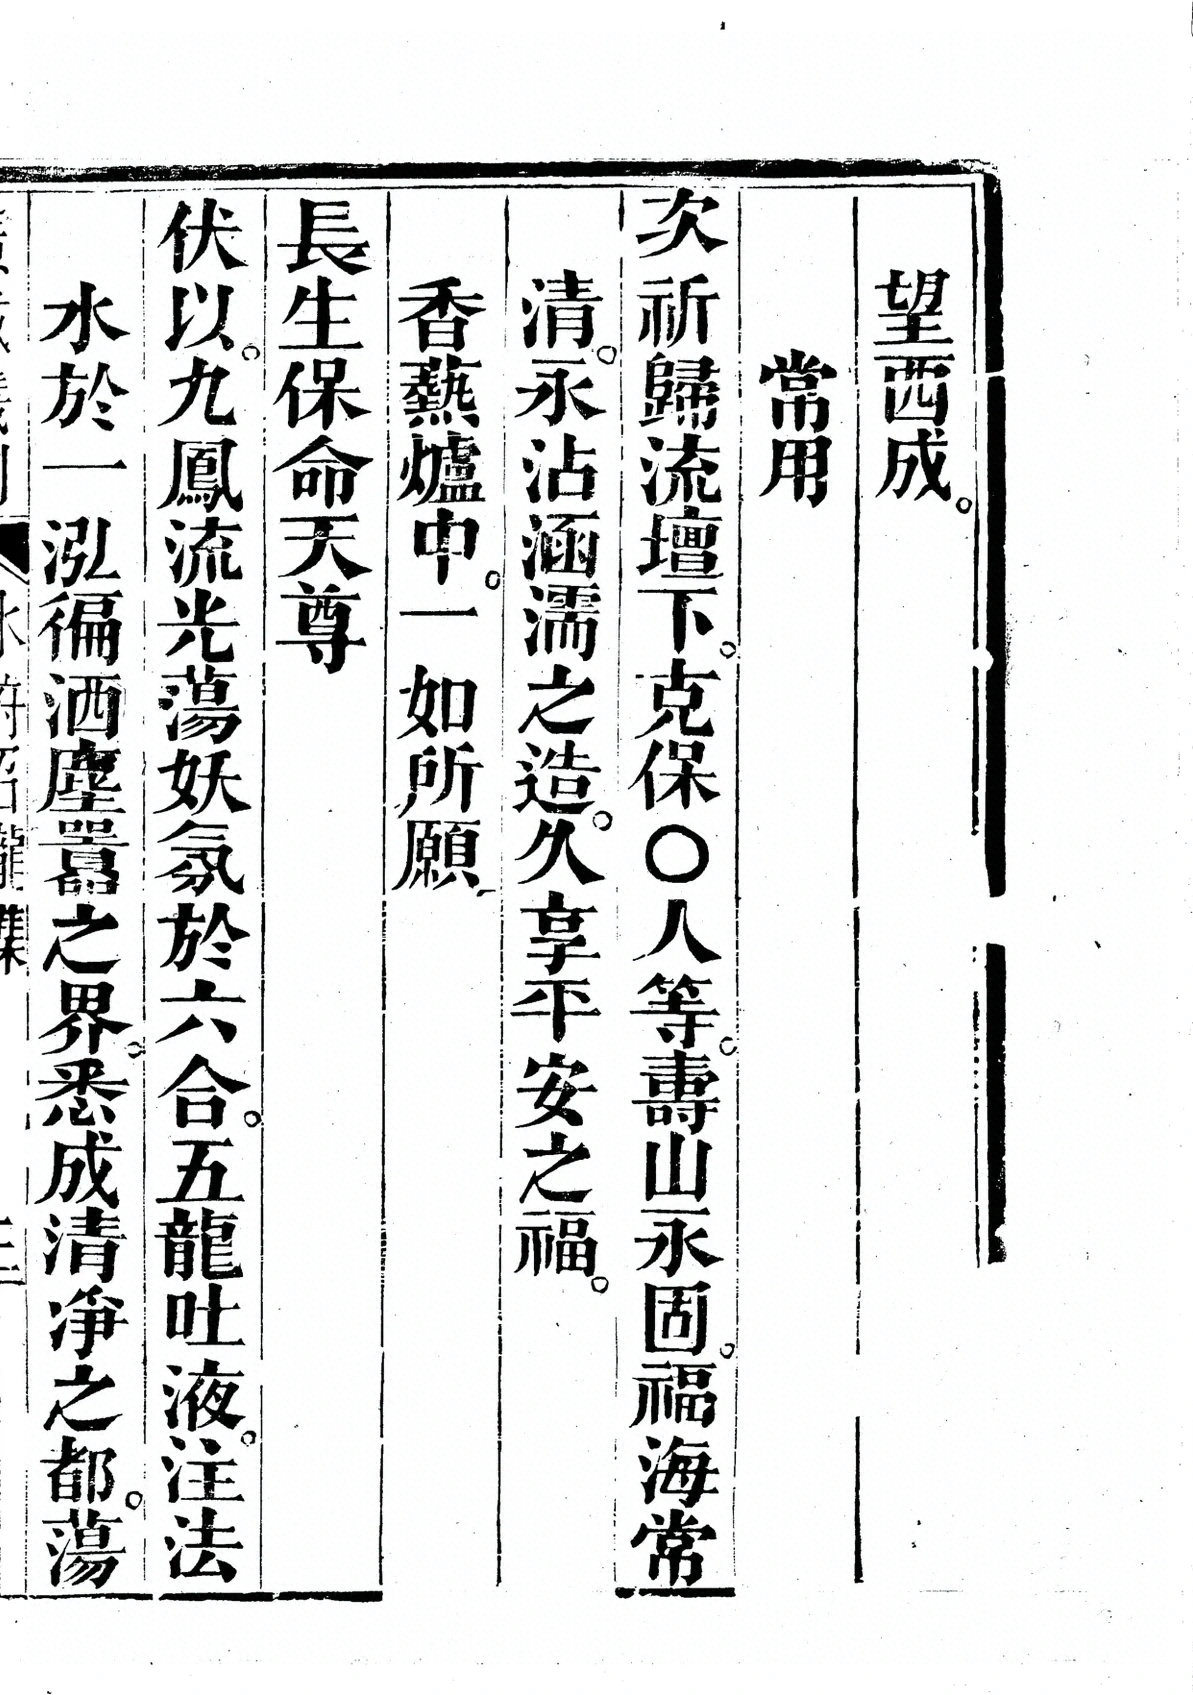 望西成。
常用
次祈歸流壇下。克保〇人等。壽山永固。福海常
清。永沾涵濡之造。久享平安之福。
香爇爐中。一如所願
長生保命天尊
伏以。九鳳流光蕩妖氛於六合。五龍吐液。注法
水於一泓徧洒塵囂之界。悉成清凈之都。蕩